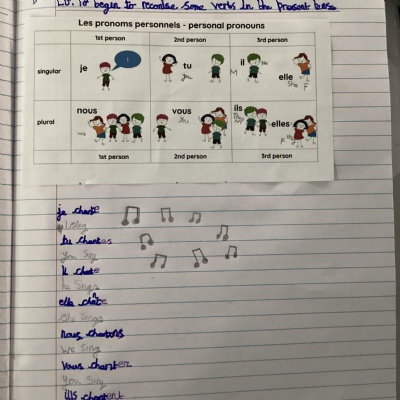 L.O. To begin to reconise some verbs in the present tense
Les pronoms personnels - personal pronouns
1st person 2nd person 3rd person
singular je tu il elle
you M he She F
plural nous vous ils elles
we you they F
1st person 2nd person 3rd person
je chante
I Sing
tu chantes
You Sing
il chate
he Sings
elle châte
She Sings
nous chantons
We Sing
Vous chanter
You Sing
ills chantent